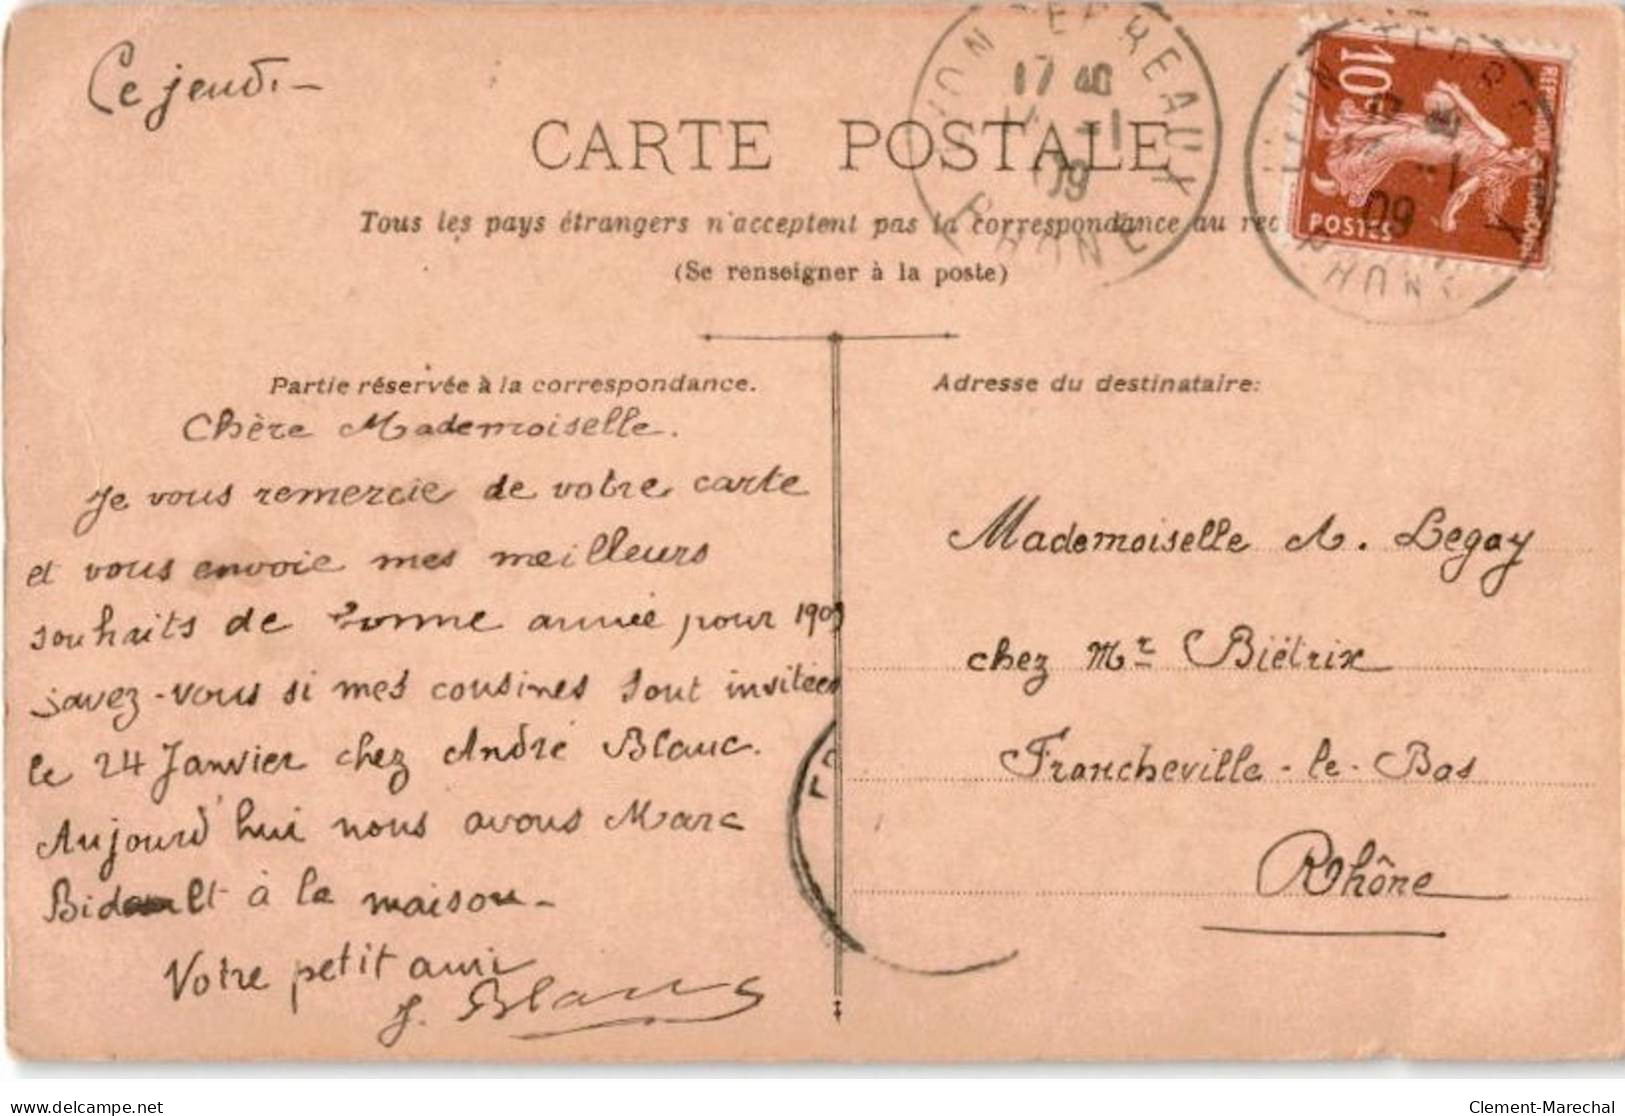 Ce jeudi -
CARTE POSTALE
Tous les pays étrangers n'acceptent pas la correspondance au
(Se renseigner à la poste)
LYON TERREAUX
17 40
-1
09
RHONE
10c
POSTES
09
Partie réservée à la correspondance.
Chère Mademoiselle.
Je vous remercie de votre carte
et vous envoie mes meilleurs
souhaits de bonne année pour 1909
savez-vous si mes cousines sont invitées
le 24 Janvier chez André Blanc.
Aujourd'hui nous avons Marc
à la maison -
Votre petit ami
J. Blanc
Adresse du destinataire:
Mademoiselle A. Legay
chez Mr Biétrix
Francheville-le-Bas
Rhône
delcampe.net
Clement-Marechal